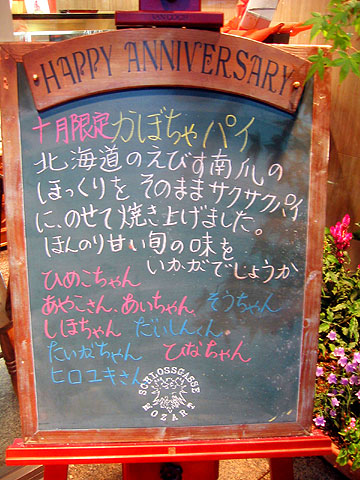 VAN GOGH
HAPPY ANNIVERSARY
十月限定 かぼちゃパイ
北海道のえびす南瓜の
ほっくりを そのままサクサクパイ
に、のせて焼き上げました。
ほんのり甘い旬の味を
いかがでしょうか
ひめこちゃん
あやこさん、あいちゃん そうちゃん
しほちゃん だいしんくん
たいがちゃん ひなちゃん
ヒロユキさん
SCHLOSSGASSE
MOZART